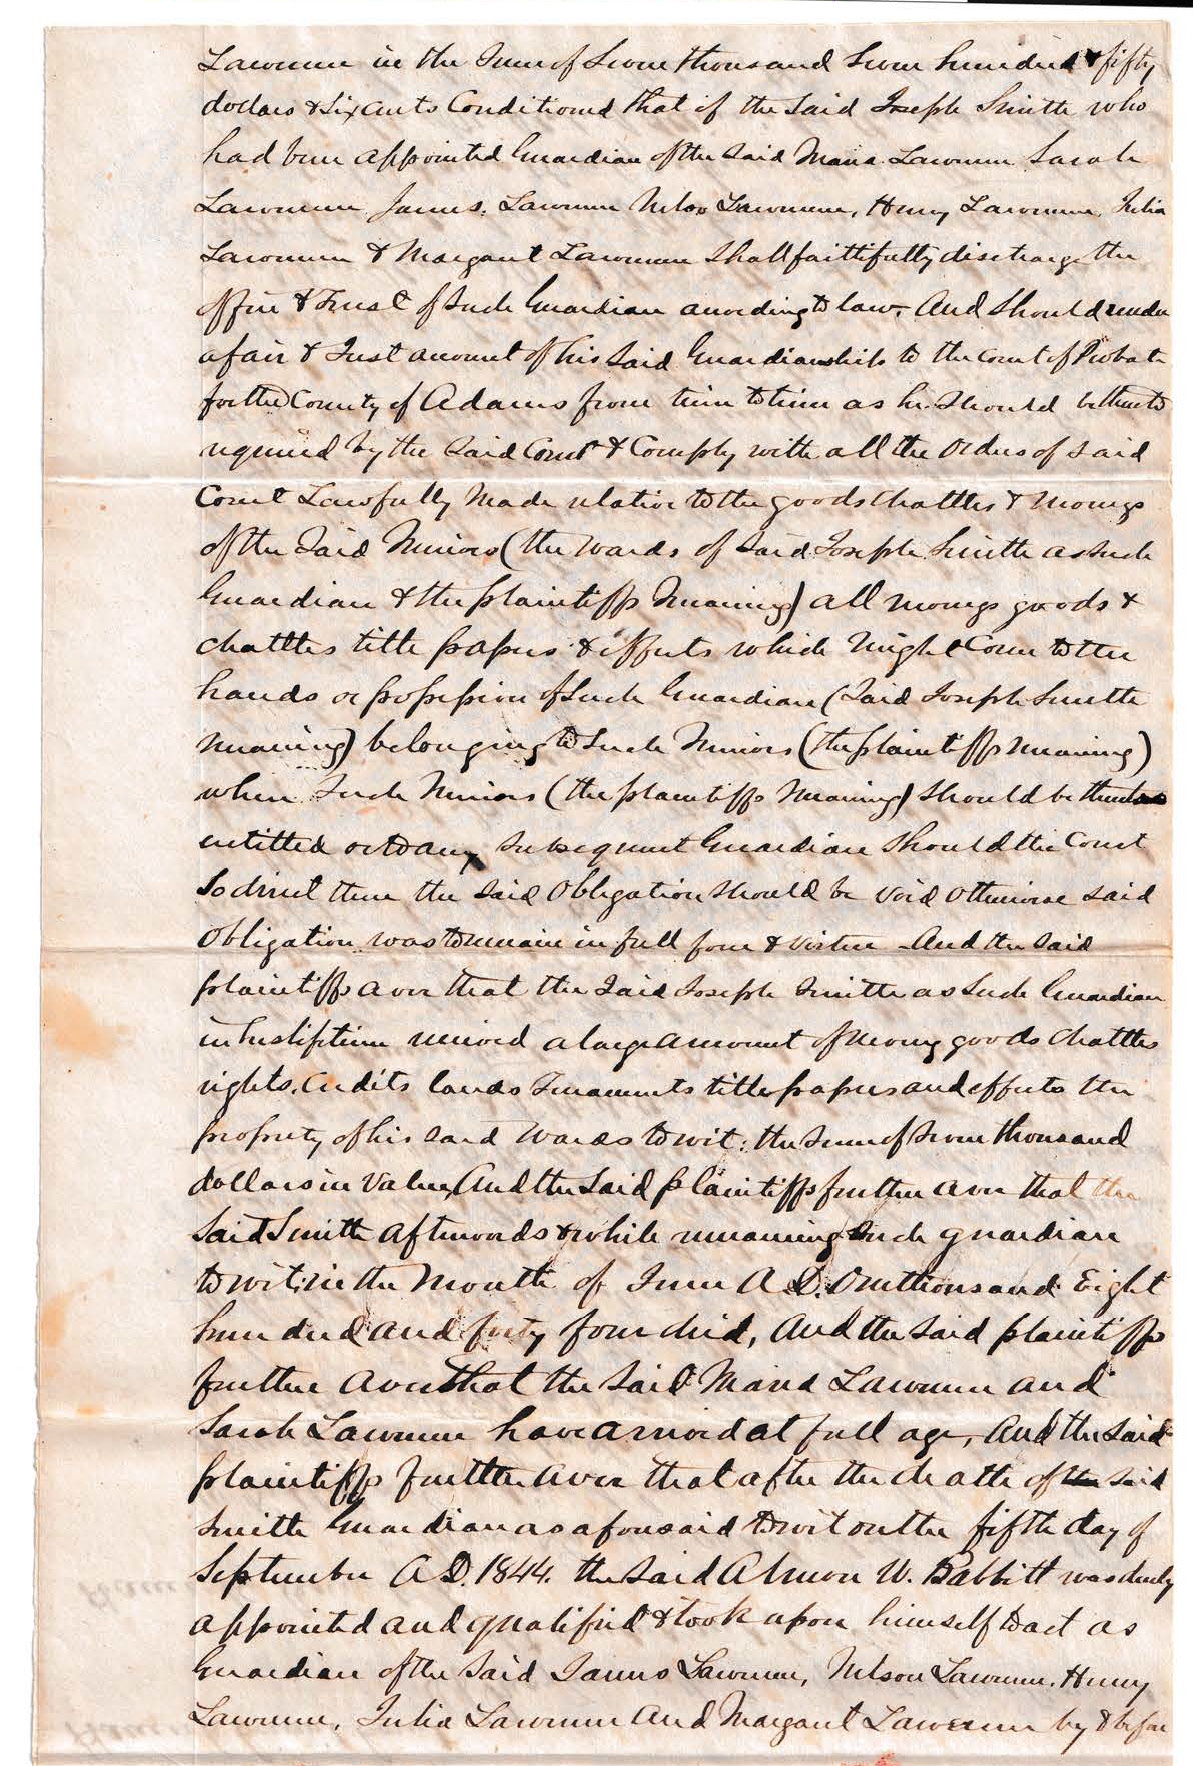 Lawrence in the Sum of Seven thousand Seven hundred & fifty
dollars & Six cents Conditioned that if the Said Joseph Smith who
had been appointed Guardian of the Said Maria Lawrence Sarah
Lawrence James. Lawrence Nelson Lawrence, Henry Lawrence, Julia
Lawrence & Margaret Lawrence Shall faithfully discharge the
office & Trust of Such Guardian according to law, And Should render
a fair & Just account of his Said Guardianship to the Court of Probate
for the County of Adams from time to time as he Should be thereto
required by the Said Court & Comply with all the Orders of Said
Court Lawfully Made relative to the goods Chattles & Moneys
of the Said Minors (the Wards of Said Joseph Smith as Such
Guardian & the plaintiffs Meaning) all Moneys goods &
Chattles title papers & effects which Might Come to the
hands or possession of Such Guardian (Said Joseph Smith
Meaning) belonging to Such Minors (the plaintiffs Meaning)
when Such Minors (the plaintiffs Meaning) Should be thereto
entitled or to any Subsequent Guardian Should the Court
So direct then the Said Obligation Should be Void Otherwise Said
Obligation was to remain in full force & Virtue And the Said
plaintiffs aver that the Said Joseph Smith as Such Guardian
in his lifetime received a large amount of Money goods Chattles
rights. Credits lands Tenaments title papers and effects the
property of his Said Wards to wit: the Sum of Seven thousand
dollars in Value, And the Said plaintiffs further aver that the
Said Smith Afterwards & while remaining Such guardian
to wit; in the Month of June A.D. One thousand Eight
hundred and forty four died, And the Said plaintiffs
further Aver that the Said Maria Lawrence and
Sarah Lawrence have arrived at full age, And the Said
plaintiffs further aver that after the death of the Said
Smith Guardian as aforesaid to wit on the fifth day of
September A.D. 1844. the Said Almon W. Babbitt was duly
appointed and qualified & took upon himself to act as
Guardian of the Said James Lawrence, Nelson Lawrence. Henry
Lawrence, Julia Lawrence And Margaret Lawrence by & before